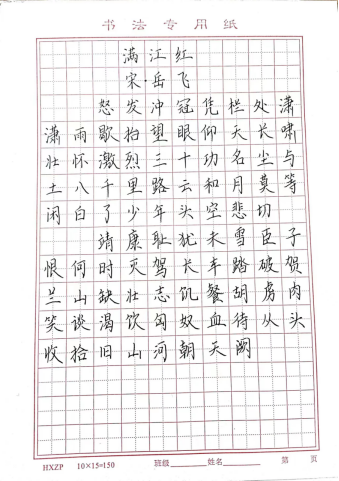 书法专用纸
满江红
宋·岳飞
怒发冲冠凭栏处潇
潇雨歇抬望眼仰天长啸
壮怀激烈三十功名尘与
土八千里路云和月莫等
闲白了少年头空悲切
靖康耻犹未雪臣子
恨何时灭驾长车踏破贺
兰山缺壮志饥餐胡虏肉
笑谈渴饮匈奴血待从头
收拾旧山河朝天阙
HXZP 10×15=150 班级 姓名 第 页